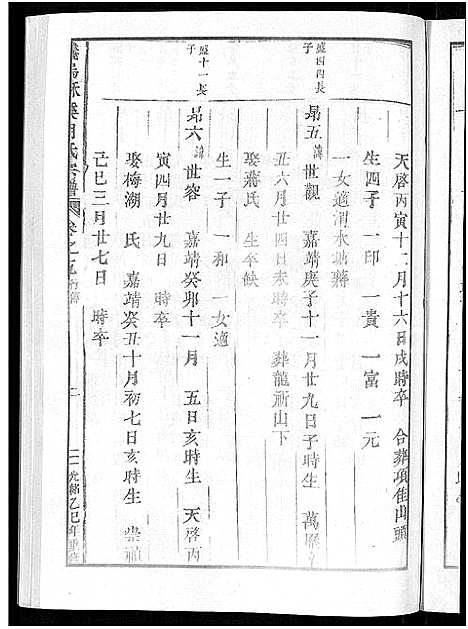 天啓丙寅十二月十六日戌時卒　合葬項隹山頭
生四子　一印　一貴　一富　一元
一女適渭水墈蔣
盛四四長子
昴五　諱世觀　嘉靖庚子十一月廿九日子時生　萬曆
丑六月廿四日未時卒　葬龍　山下
娶蔣氏　生卒缺
生一子　一和　一女適
盛十一長子
昴六　諱世容　嘉靖癸卯十一月　五日亥時生　天啓丙
寅四月廿九日　時卒
娶梅湖　氏　嘉靖癸丑十月初七日亥時生　崇禎
己巳三月廿七日　時卒
氏宗譜　卷之　行傳　光緒乙巳年重修